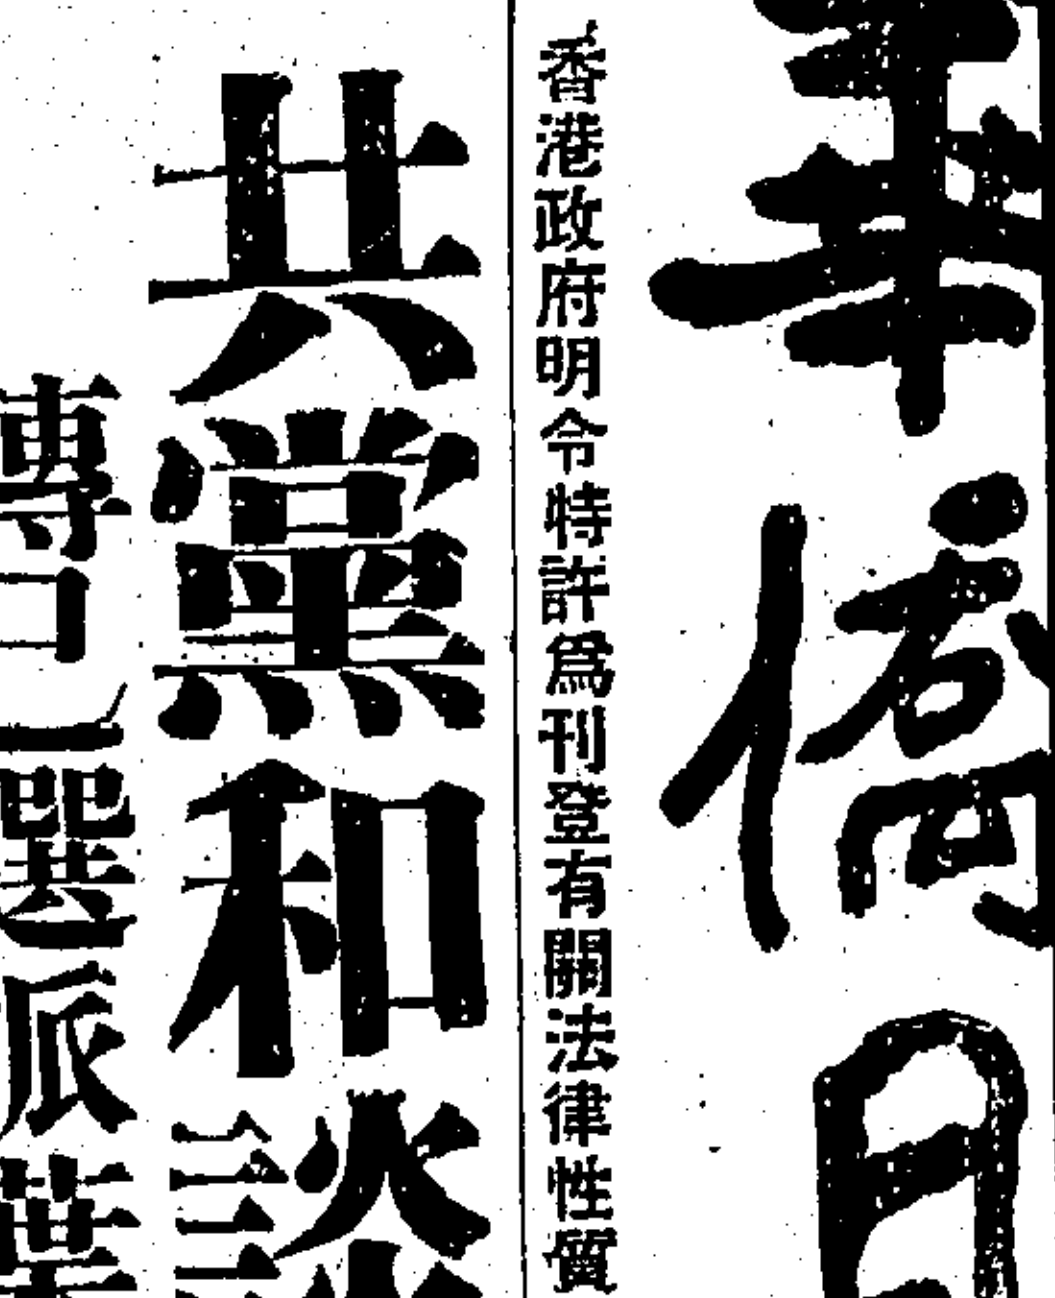 華僑日
香港政府明令特許爲刊登有關法律性質
共黨和談
傳已選派葉